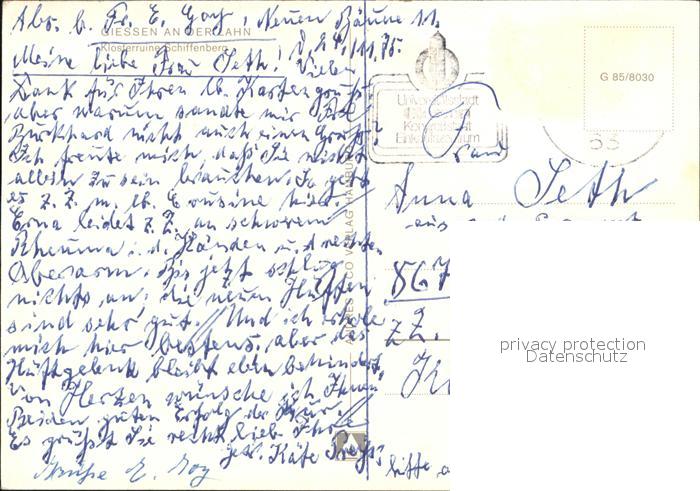 Abs. b. Fr. E. Goy, Neuen Bäune 11.
GIESSEN AN DER LAHN
Klosterruine Schiffenberg
d. 24. III. 75.
Meine liebe Frau Seth! Vielen
Dank für Ihren lb. Kartengruß
aber warum sandte mir Frl.
Burkhard nicht auch einen Gruß?
Ich freute mich, daß Sie nicht
allein zu sein brauchen. So geht
es z. Z. m. lb. Cousine hier.
Erna leidet z. Z. an schwerem
Rheuma i. d. Händen u. rechten
Oberarm. Bis jetzt schlug
nichts an. die neuen Hüften
sind sehr gut. Und ich erhole
mich hier bestens, aber das
Hüftgelenk bleibt eben behindert.
Von Herzen wünsche ich Ihnen
Beiden guten Erfolg der Kur.
Es grüßt Sie recht lieb Ihre
gez. Käte
Grüße E. Goy
Universitätsstadt
Kongreßstadt
Einkaufszentrum
G 85/8030
63
Frau
Anna Seth
aus
867
z. Z.
bitte
privacy protection
Datenschutz